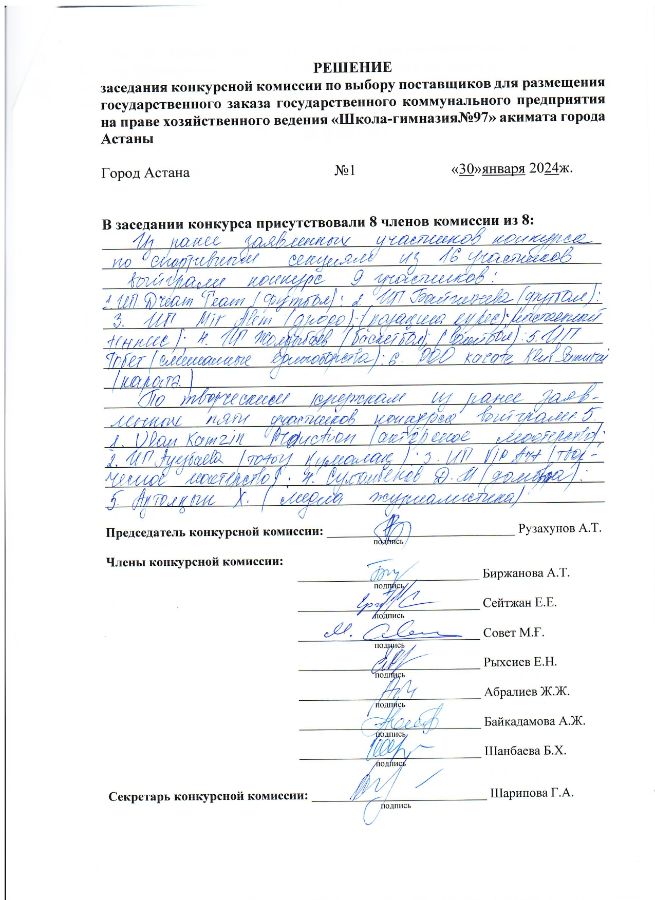 РЕШЕНИЕ
заседания конкурсной комиссии по выбору поставщиков для размещения
государственного заказа государственного коммунального предприятия
на праве хозяйственного ведения «Школа-гимназия№97» акимата города
Астаны
Город Астана №1 «30»января 2024ж.
В заседании конкурса присутствовали 8 членов комиссии из 8:
Из ранее заявленных участников конкурса
по спортивным секциям из 16 участников
выиграли конкурс 9 участников:
1. ИП Dream Team (футбол); 2. ИП (футбол);
3. ИП Mir Alem
теннис); 4. ИП (баскетбол, волейбол); 5 ИП
(смешанные единоборства); 6. ООО
(каратэ)
По творческим кружкам из ранее заяв-
ленных пяти участников конкурса выиграли 5
1. Ulan Kamzin Production (актерское мастерство);
2. ИП (тоғыз құмалақ); 3. ИП Pro Art (твор-
ческое мастерство); 4. Д. (домбра);
5. Х. (медиа журналистика)
Председатель конкурсной комиссии: Рузахунов А.Т.
подпись
Члены конкурсной комиссии:
Биржанова А.Т.
подпись
Сейтжан Е.Е.
подпись
Совет М.Ғ.
подпись
Рыхсиев Е.Н.
подпись
Абралиев Ж.Ж.
подпись
Байкадамова А.Ж.
подпись
Шанбаева Б.Х.
подпись
Секретарь конкурсной комиссии: Шарипова Г.А.
подпись